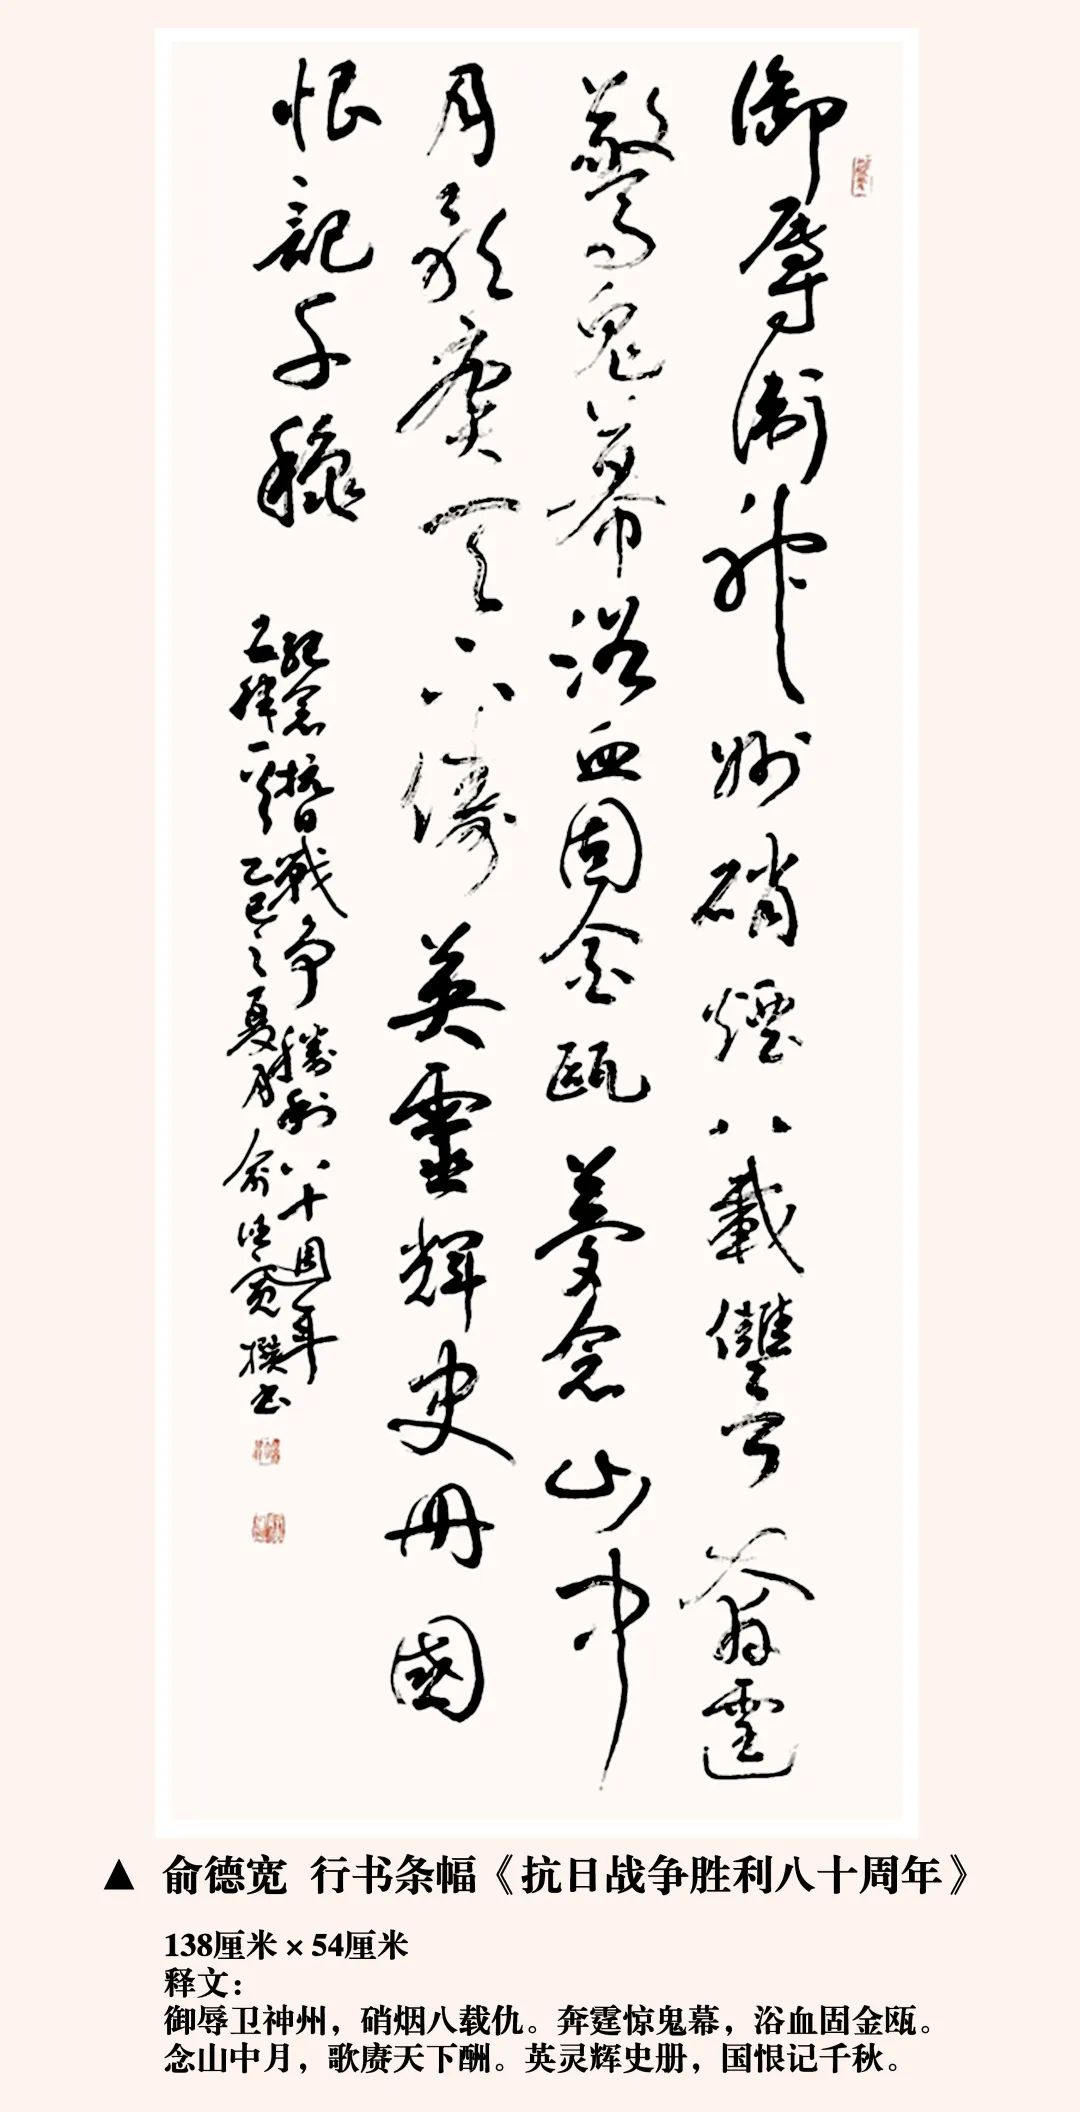 御辱衛神州硝煙八載讐霆
驚鬼幕浴血固金甌夢念山中
月歌賡天下儔英靈輝史册國
恨記千穐
紀念抗日戰争勝利八十週年
五律一首乙巳之夏月俞德寬撰书
▲ 俞德宽 行书条幅《抗日战争胜利八十周年》
138厘米 × 54厘米
释文：
御辱卫神州，硝烟八载仇。奔霆惊鬼幕，浴血固金瓯。
念山中月，歌赓天下酬。英灵辉史册，国恨记千秋。